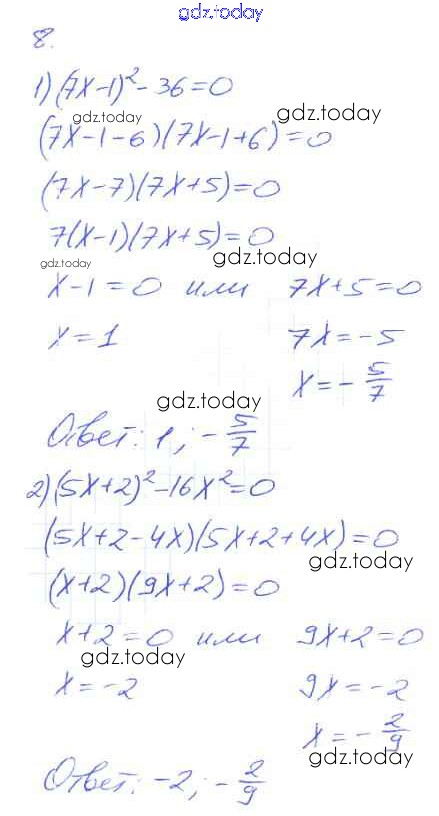 gdz.today
8.
1) (7x-1)² - 36 = 0
gdz.today
(7x-1-6)(7x-1+6) = 0
(7x-7)(7x+5) = 0
7(x-1)(7x+5) = 0
gdz.today gdz.today
x-1 = 0 или 7x+5 = 0
x = 1 7x = -5
x = -5/7
gdz.today
Ответ: 1; -5/7
2) (5x+2)² - 16x² = 0
(5x+2-4x)(5x+2+4x) = 0
gdz.today
(x+2)(9x+2) = 0
x+2 = 0 или 9x+2 = 0
gdz.today
x = -2 9x = -2
x = -2/9
gdz.today
Ответ: -2; -2/9